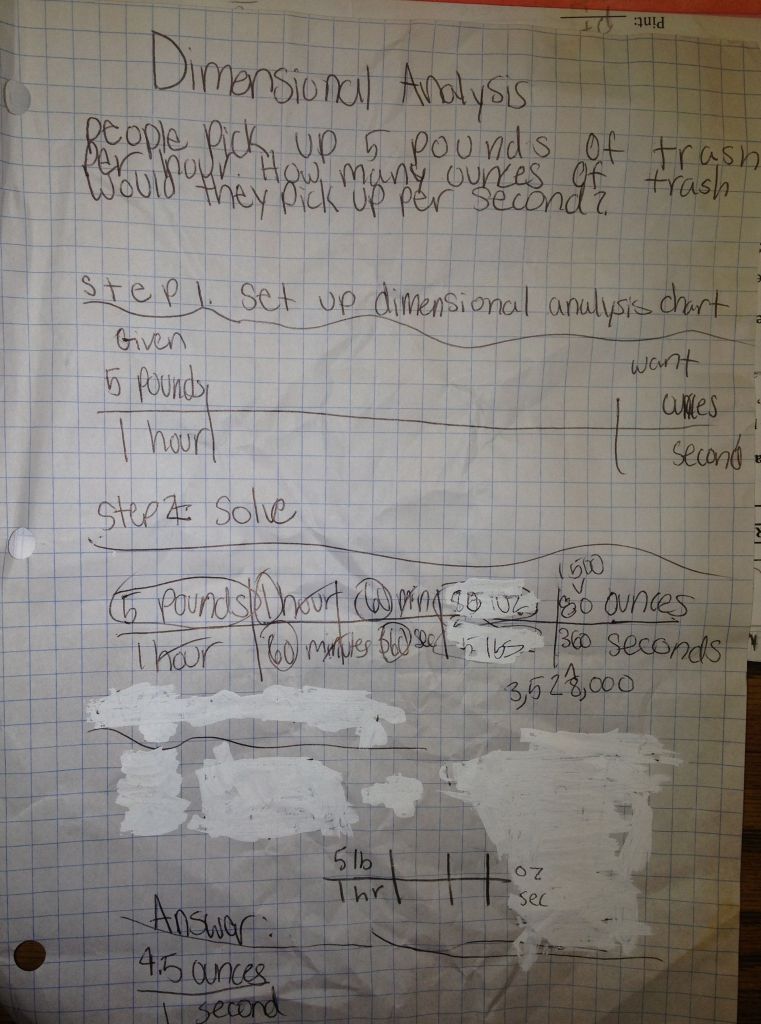 Pint:
Dimensional Analysis
People pick up 5 pounds of trash
per hour. How many ounces of trash
would they pick up per second?
Step 1. set up dimensional analysis chart
Given
want
5 pounds
ounces
1 hour
second
Step 2: Solve
1500
5 pounds 1 hour 60 min 80 oz. 80 ounces
1 hour 60 minutes 360 sec 5 lbs. 360 seconds
3,528,000
5 lb
oz
1 hr
sec
Answer:
4.5 ounces
1 second